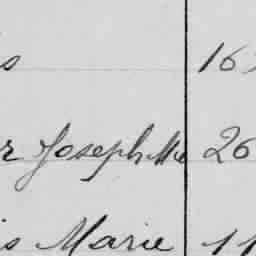 s 16
r Joseph Mie 26
is Marie 11